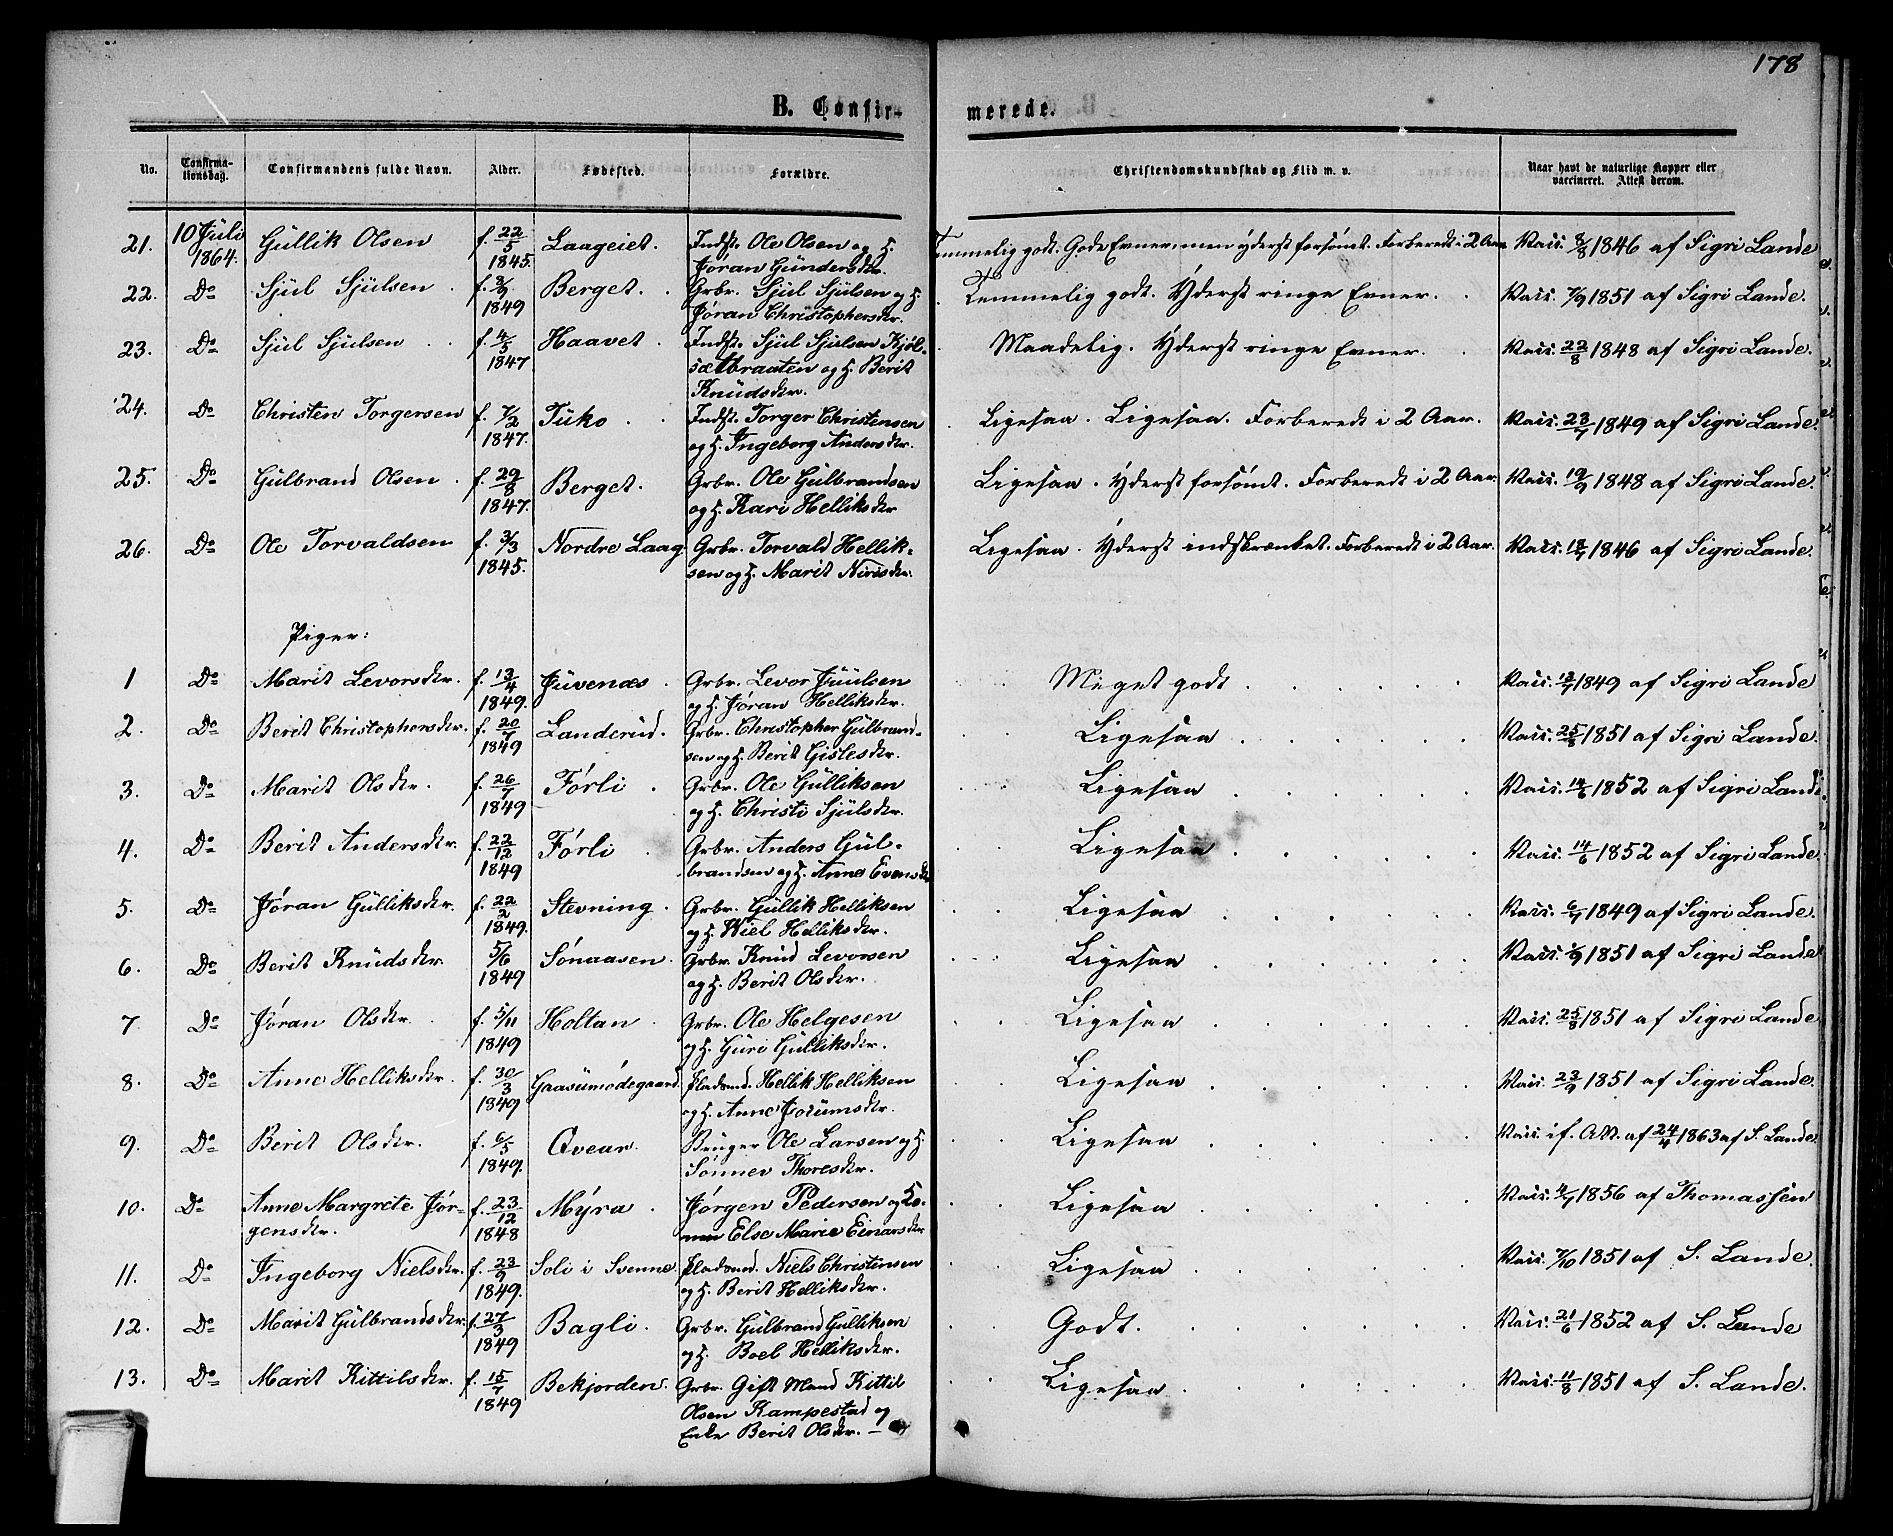 178
B. Confir- merede.
No. Confirma- tionsdag. Confirmandens fulde Navn. Alder. Fødested. Forældre. Christendomskundskab og Flid m. v. Naar havt de naturlige Kopper eller vaccineret. Attest derom.
21. 10 Juli 1864. Gullik Olsen f. 22/5 1845. Laageiet. Indst. Ole Olsen og H. Jóran Gundersdtr. Temmelig godt. Gode Evner, men yderst forsömt. Forberedt i 2 Aar Vacc. 8/8 1846 af Sigri Lande
22. Do Sjul Sjulsen f. 1849 Berget. Grbr. Sjul Sjulsen og H. Jóran Christophersdtr. Temmelig godt. Yderst ringe Evner. Vacc. 7/9 1851 af Sigri Lande.
23. Do Sjul Sjulsen f. 4/5 1847 Haavet. Indst. Sjul Sjulsen Kjöl- sætbraaten og H. Berit Knudsdtr. Maadelig. Yderst ringe Evner. Vacc. 22/8 1848 af Sigri Lande.
24. Do Christen Torgersen f. 7/2 1847. Tuko Indst. Torger Christensen og H. Ingeborg Andersdtr. Ligesaa. Ligesaa. Forberedt i 2 Aar. Vacc. 23/7 1849 af Sigri Lande.
25. Do Gulbrand Olsen f. 29/8 1847. Berget. Grbr. Ole Gulbrandsen og H. Kari Helliksdtr Ligesaa. Yderst forsömt. Forberedt i 2 Aar. Vacc. 19/9 1848 af Sigri Lande.
26. Do Ole Torvaldsen f. 3/3 1845. Nordre Laag. Grbr. Torvald Hellik- sen og H. Marit Nirisdtr. Ligesaa. Yderst indskrænket. Forberedt i 2 Aar. Vacc. 1846 af Sigri Lande.
Piger:
1 Do Marit Levorsdtr. f. 13/4 1849. Juvenæs Grbr. Levor Juulsen og H. Jóran Helliksdtr. Meget godt Vacc. 1849 af Sigri Lande
2. Do Berit Christophersdtr. f. 20/7 1849 Landerud. Grbr. Christopher Gulbrand- sen og H. Berit Gislesdtr. Ligesaa Vacc. 25/8 1851 af Sigri Lande.
3. Do Marit Olsdtr. f. 26/7 1849 Fórli Grbr. Ole Gulliksen og H. Christi Sjulsdtr. Ligesaa Vacc. 14/6 1852 af Sigri Lande.
4. Do Berit Andersdtr. f. 22/12 1849 Fórli Grbr. Anders Gul- brandsen og H. Anne Evensdtr Ligesaa Vacc. 14/6 1852 af Sigri Lande.
5. Do Jóran Gulliksdtr. f. 22/2 1849. Stevning. Grbr. Gullik Helliksen og H. Kiel Helliksdtr. Ligesaa Vacc. 1849 af Sigri Lande.
6. Do Berit Knudsdtr. 5/6 1849 Sönaasen. Grbr. Knud Levorsen og H. Berit Olsdtr. Ligesaa Vacc. 1851 af Sigri Lande
7. Do Jóran Olsdtr. f. 5/11 1849 Holtan Grbr. Ole Helgesen og H. Guri Gulliksdtr. Ligesaa Vacc. 25/8 1851 af Sigri Lande
8. Do Anne Helliksdtr. f. 30/3 1849. Gaasumödegaard Pladsmd. Hellik Helliksen og H. Anne Jorumsdtr. Ligesaa Vacc. 23/9 1851 af Sigri Lande.
9. Do Berit Olsdtr. f. 6/5 1849. Qvear. Bruger Ole Larsen og H. Sönnev Thoresdtr. Ligesaa Vacc. if. Att. af 24/4 1863 af S. Lande.
10. Do Anne Margrete Jör- gensdtr. f. 23/12 1848 Mýra Jörgen Pedersen og Ko- nen Else Marie Einarsdtr Ligesaa Vacc. 1856 af Thomassen
11. Do Ingeborg Nielsdtr. f. 23/9 1849. Soli i Svenne. Pladsmd. Niels Christensen og H. Berit Helliksdtr. Ligesaa Vacc. 7/10 1851 af S. Lande.
12. Do Marit Gulbrandsdtr. f. 27/3 1849 Bagli. Grbr. Gulbrand Gulliksen og H. Boel Helliksdtr. Godt. Vacc. 21/6 1852 af S. Lande
13. Do Marit Kittilsdtr. f. 15/7 1849 Bekjorden. Grbr. Gift Mand Kittil Olsen Kampestad og Enke Berit Olsdtr. Ligesaa Vacc. 11/8 1851 af S. Lande.